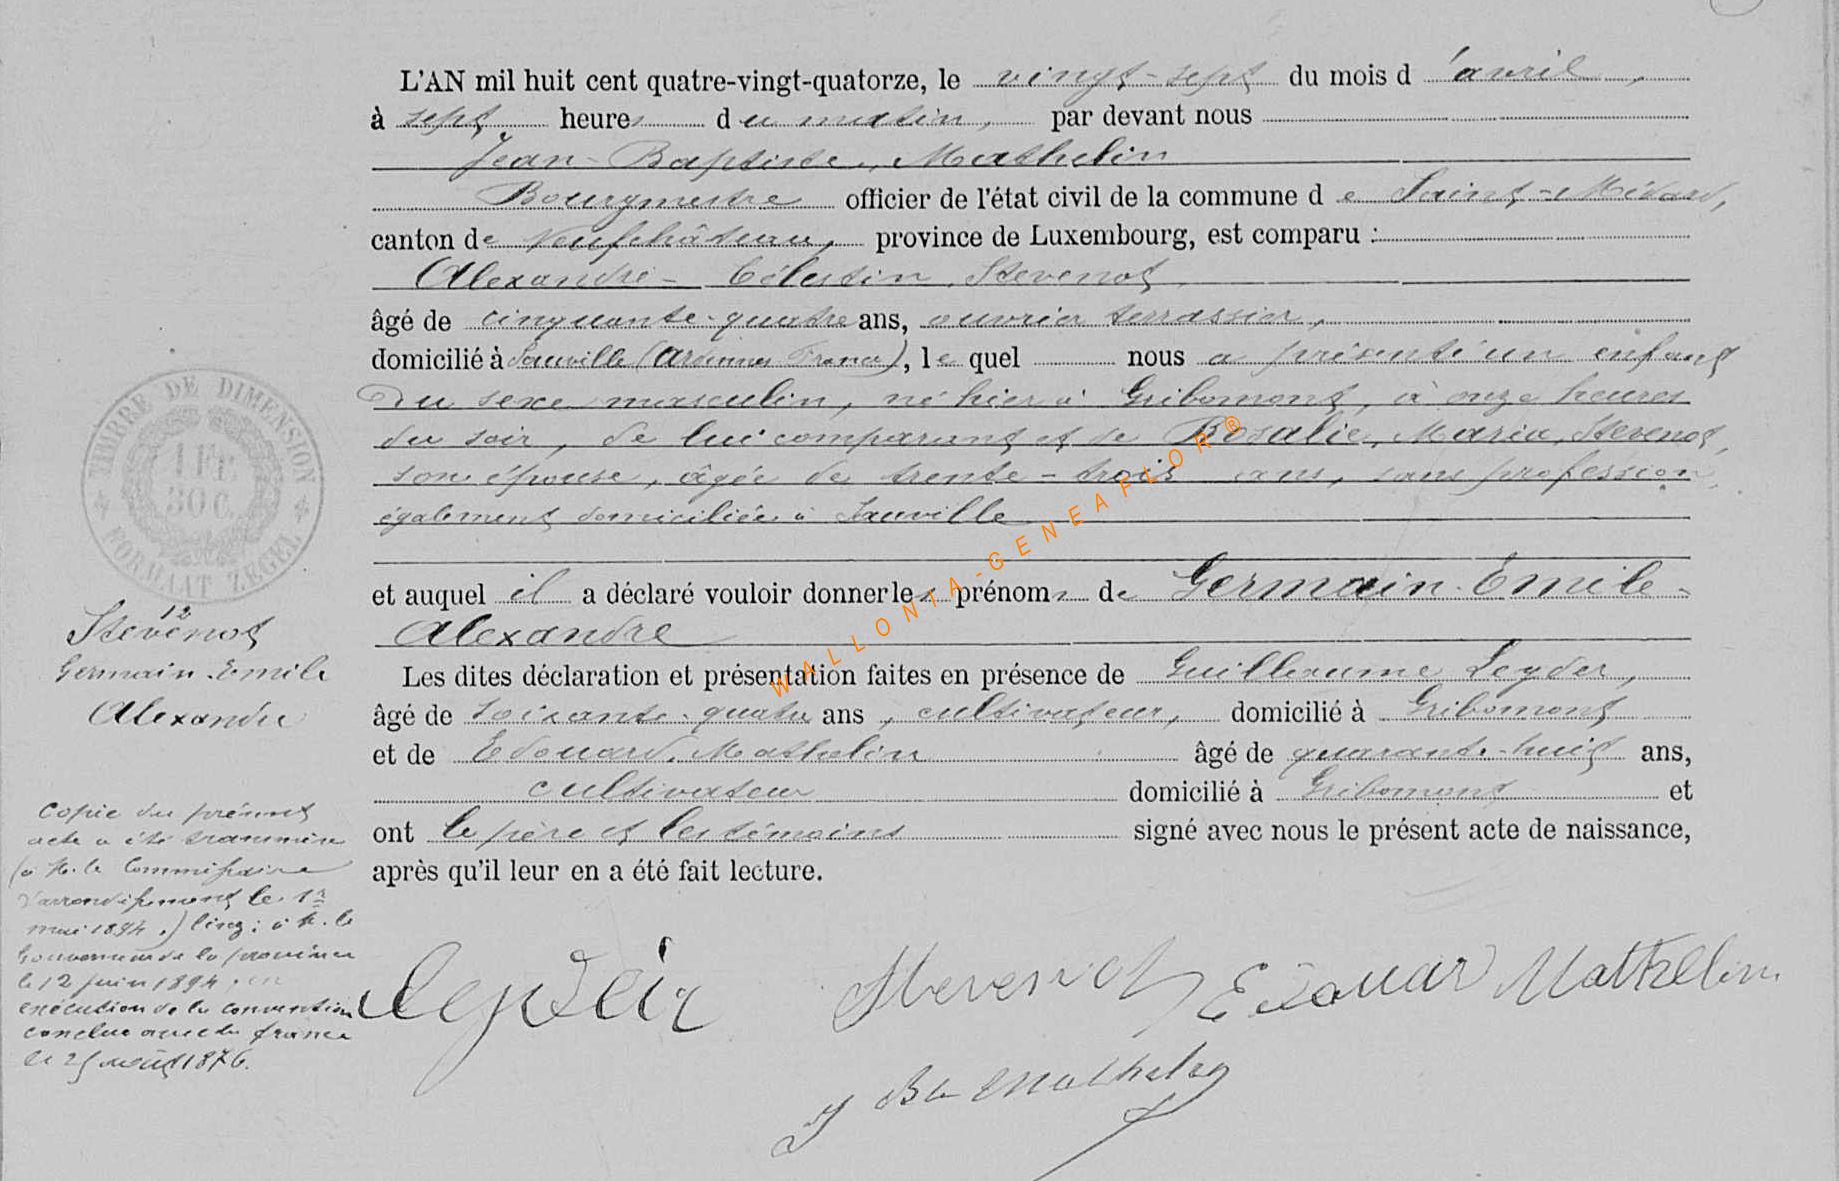 L'AN mil huit cent quatre-vingt-quatorze, le vingt-sept du mois d'avril,
à sept heures du matin, par devant nous
Jean-Baptiste, Mathelin
Bourgmestre officier de l'état civil de la commune de Saint-Médard,
canton de Neufchâteau, province de Luxembourg, est comparu :
Alexandre-Célestin Stevenot
âgé de cinquante-quatre ans, ouvrier terrassier,
domicilié à (Ardennes France), lequel nous a présenté un enfant
du sexe masculin, né hier à Gribomont, à onze heures
du soir, de lui comparant et de Rosalie, Maria, Stevenot,
son épouse, âgée de trente-trois ans, sans profession,
également domiciliée à
et auquel il a déclaré vouloir donner les prénoms de Germain-Emile-
Alexandre
Les dites déclaration et présentation faites en présence de Guilleaume Leyder,
âgé de soixante-quatre ans, cultivateur, domicilié à Gribomont
et de Edouard, Mathelin âgé de quarante-huit ans,
cultivateur domicilié à Gribomont et
ont le père et les témoins signé avec nous le présent acte de naissance,
après qu'il leur en a été fait lecture.
TIMBRE DE DIMENSION
1 Fr.
30 C.
FORMAAT ZEGEL
12
Stevenot
Germain-Emile
Alexandre
Copie du présent
acte a été transmise
(à M. le Commissaire
d'arrondissement le 1er
mai 1894.) à M. le
Gouverneur de la province
le 12 juin 1894, en
exécution de la convention
conclue avec la france
le 25 août 1876.
Leyder Stevenot Edouard Mathelin
J Bte Mathelin
WALLONIA-GENEAFLOR®